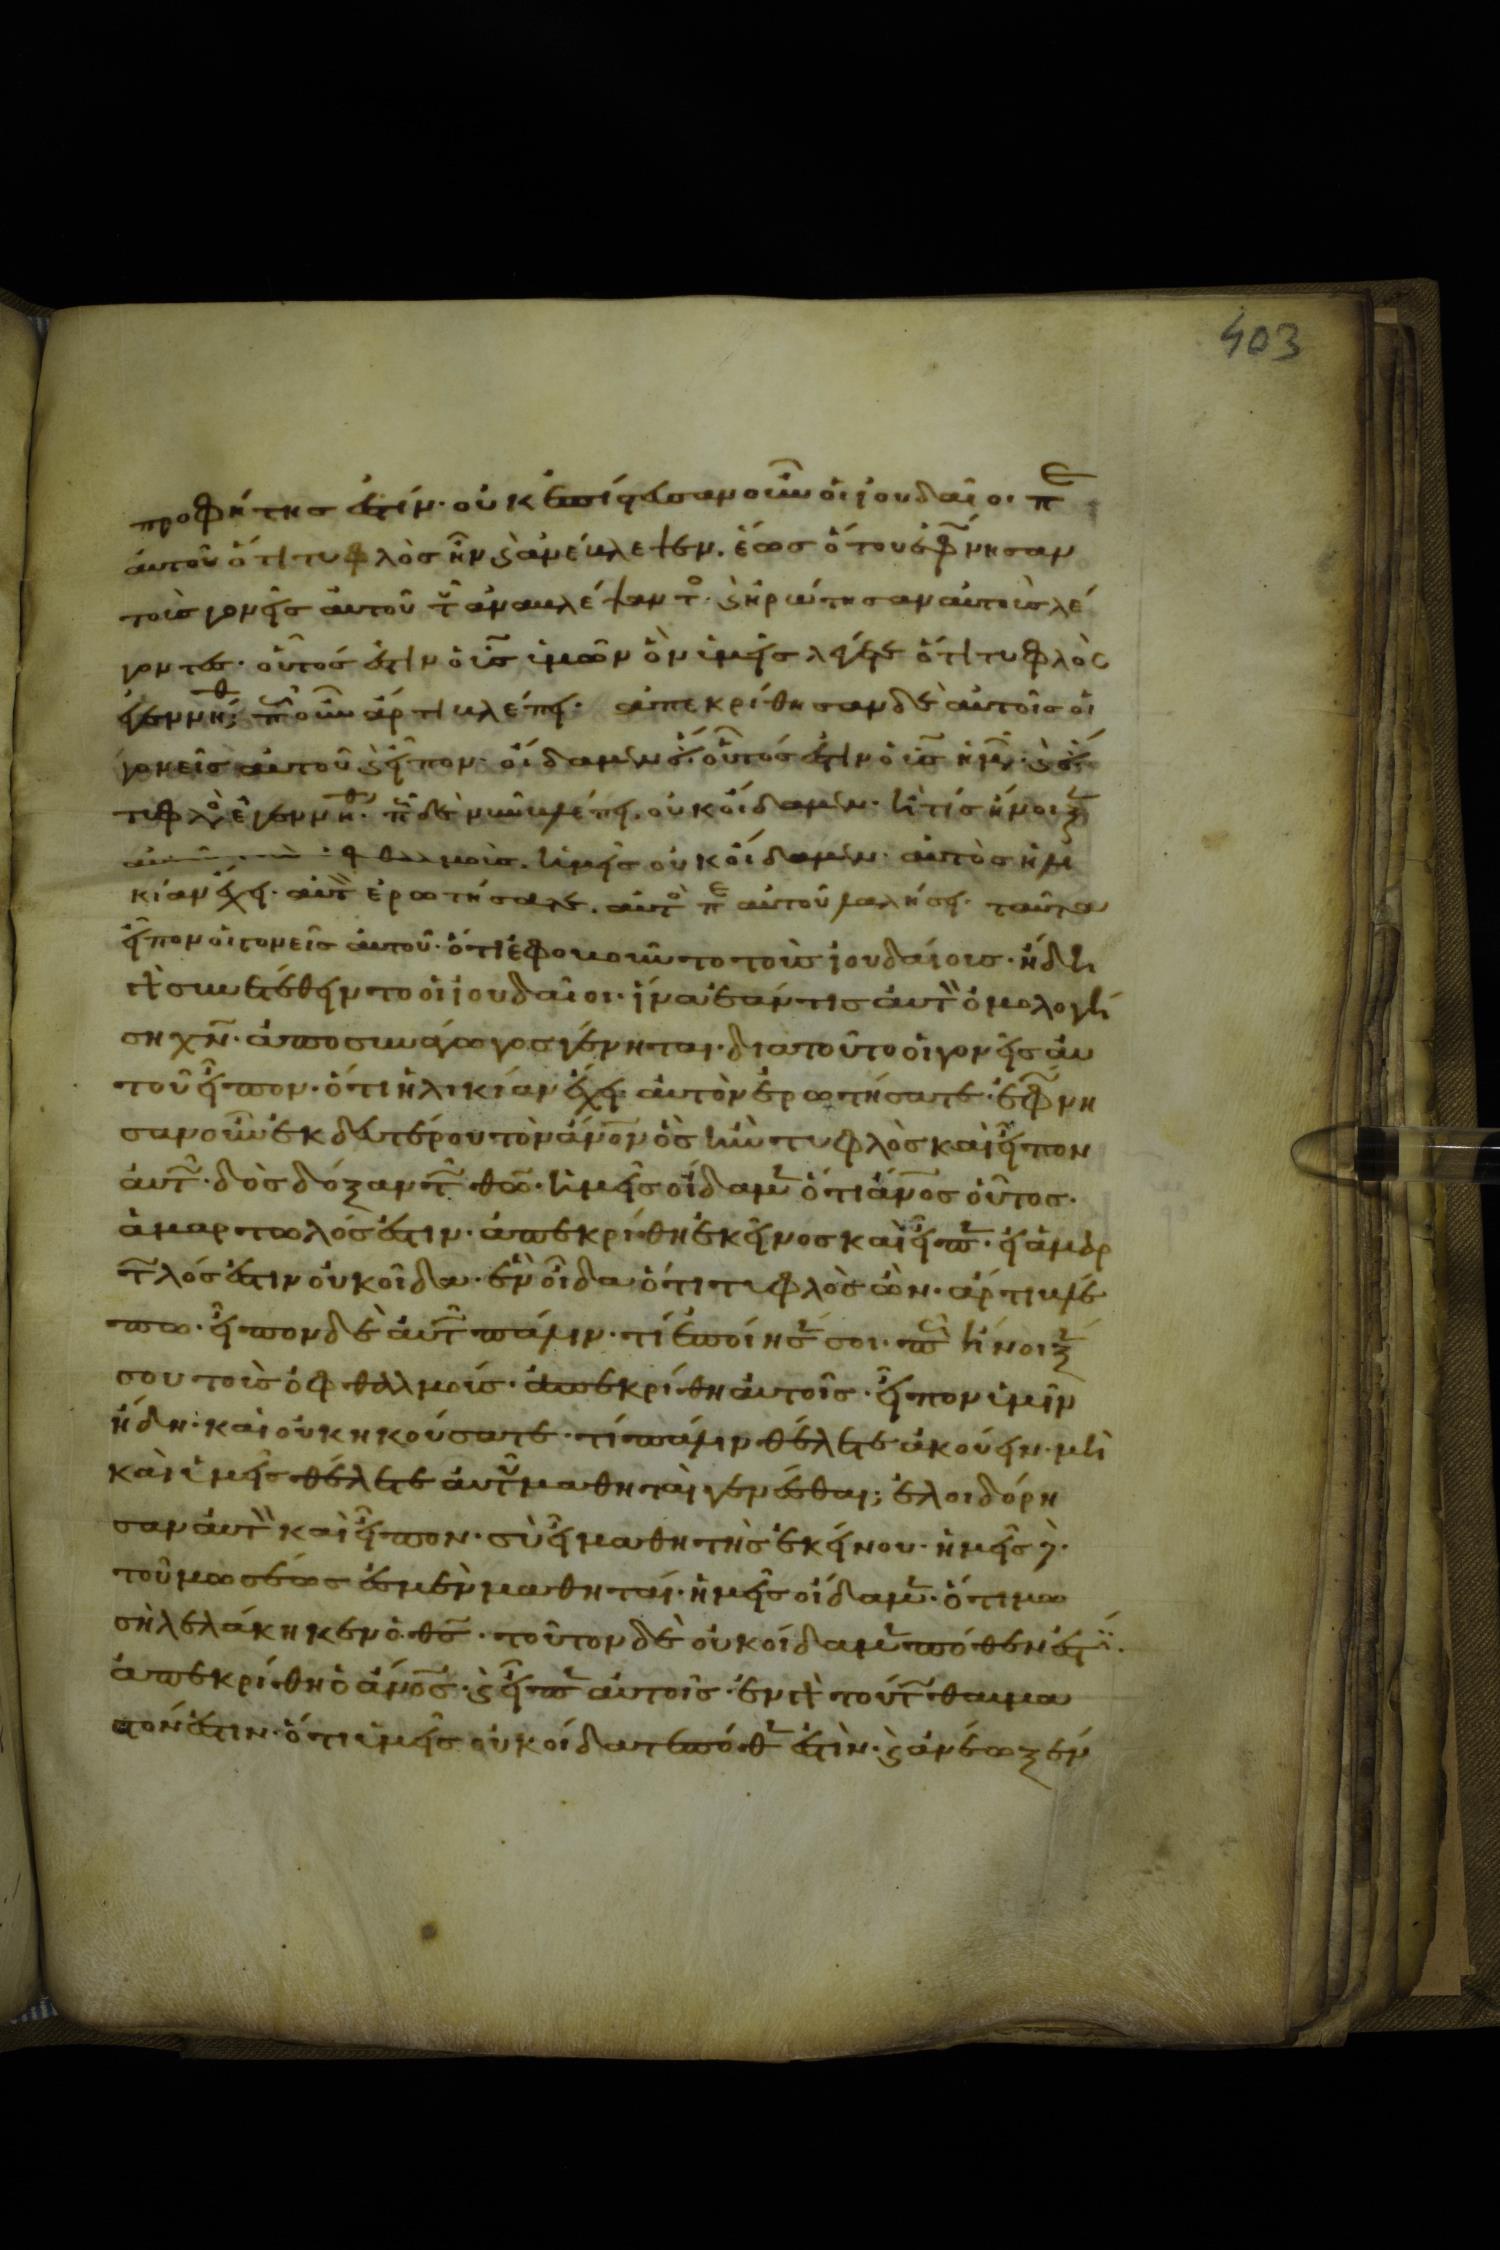 403
προφήτης ἐστίν· οὐκ ἐπίστευσαν οὖν οἱ ἰουδαῖοι· πε
αὐτοῦ ὅτι τυφλὸς ἦν ϗ ἀνέβλεψεν. ἕως ὅτου ἐφώνησαν
τοὺς γονεῖς αὐτοῦ τοῦ ἀναβλέψαντο· ϗ ἠρώτησαν αὐτοὺς λέ
γοντες· οὗτός ἐστιν ὁ υἱς ὑμῶν ὃν ὑμεῖς λέγετε ὅτι τυφλὸς
ἐγεννήθ; πῶς οὖν ἄρτι βλέπει· ἀπεκρίθησαν δὲ αὐτοῖς οἱ
γονεῖς αὐτοῦ ϗ εἶπον· οἴδαμεν ὅτι οὗτός ἐστιν ὁ υἱς ἡμῶν· ϗ ὅτι
τυφλὸ ἐγεννήθ· πῶς δὲ νῦν βλέπει. οὐκ οἴδαμεν· ἢ τίς ἤνοιξ
ὀφθαλμοὺς. ἡμεῖς οὐκ οἴδαμεν· αὐτὸς ἡλι
κίαν ἔχει· αὐτὸν ἐρωτήσατε. αὐτὸ πε αὐτοῦ λαλήσει· ταῦτα
εἶπον οἱ γονεῖς αὐτοῦ· ὅτι ἐφοβοῦντο τοὺς ἰουδαίους· ἤδη
γὰρ συνετέθειντο οἱ ἰουδαῖοι· ἵνα ἐάν τις αὐτὸν ὁμολογή
ση χν· ἀποσυνάγωγος γένηται· διατοῦτο οἱ γονεῖς αὐ
τοῦ εἶπον· ὅτι ἡλικίαν ἔχει αὐτὸν ἐρωτήσατε· ἐφώνη
σαν οὖν ἐκ δευτέρου τὸν ἄνον ὃς ἦν τυφλὸς καὶ εἶπον
αὐτῶ· δὸς δόξαν τῶ θω· ἡμεῖς οἴδαμ ὅτι ἄνος οὗτος·
ἁμαρτωλός ἐστιν· ἀπεκρίθη ἐκεῖνος καὶ εἶπ· εἰ ἁμαρ
τωλός ἐστιν οὐκ οἶδα· ἓν οἶδα ὅτι τυφλὸς ὢν· ἄρτι βλέ
πω· εἶπον δὲ αὐτῶ πάλιν· τί ἐποίησ σοι· πῶς ἤνοιξ
σου τοὺς ὀφθαλμούς· ἀπεκρίθη αὐτοῖς· εἶπον ὑμῖν
ἤδη· καὶ οὐκ ἠκούσατε· τί πάλιν θέλετε ἀκούειν· μὴ
καὶ ὑμεῖς θέλετε αὐτοῦ μαθηταὶ γενέσθαι; ἐλοιδόρη
σαν αὐτὸν καὶ εἶπον· σὺ εἶ μαθητὴς ἐκείνου· ἡμεῖς δὲ·
τοῦ μωσέως ἐσμὲν μαθηταί· ἡμεῖς οἴδαμ· ὅτι μω
σῆ λελάληκεν ὁ θς· τοῦτον δὲ οὐκ οἴδαμ πόθεν ἐστί·
ἀπεκρίθη ὁ ἄνος· ϗ εἶπ αὐτοῖς· ἐν γὰρ τούτω θαυμα
στόν ἐστιν· ὅτι ὑμεῖς οὐκ οἴδατε πόθ ἐστὶν· ϗ ἀνέωξεν